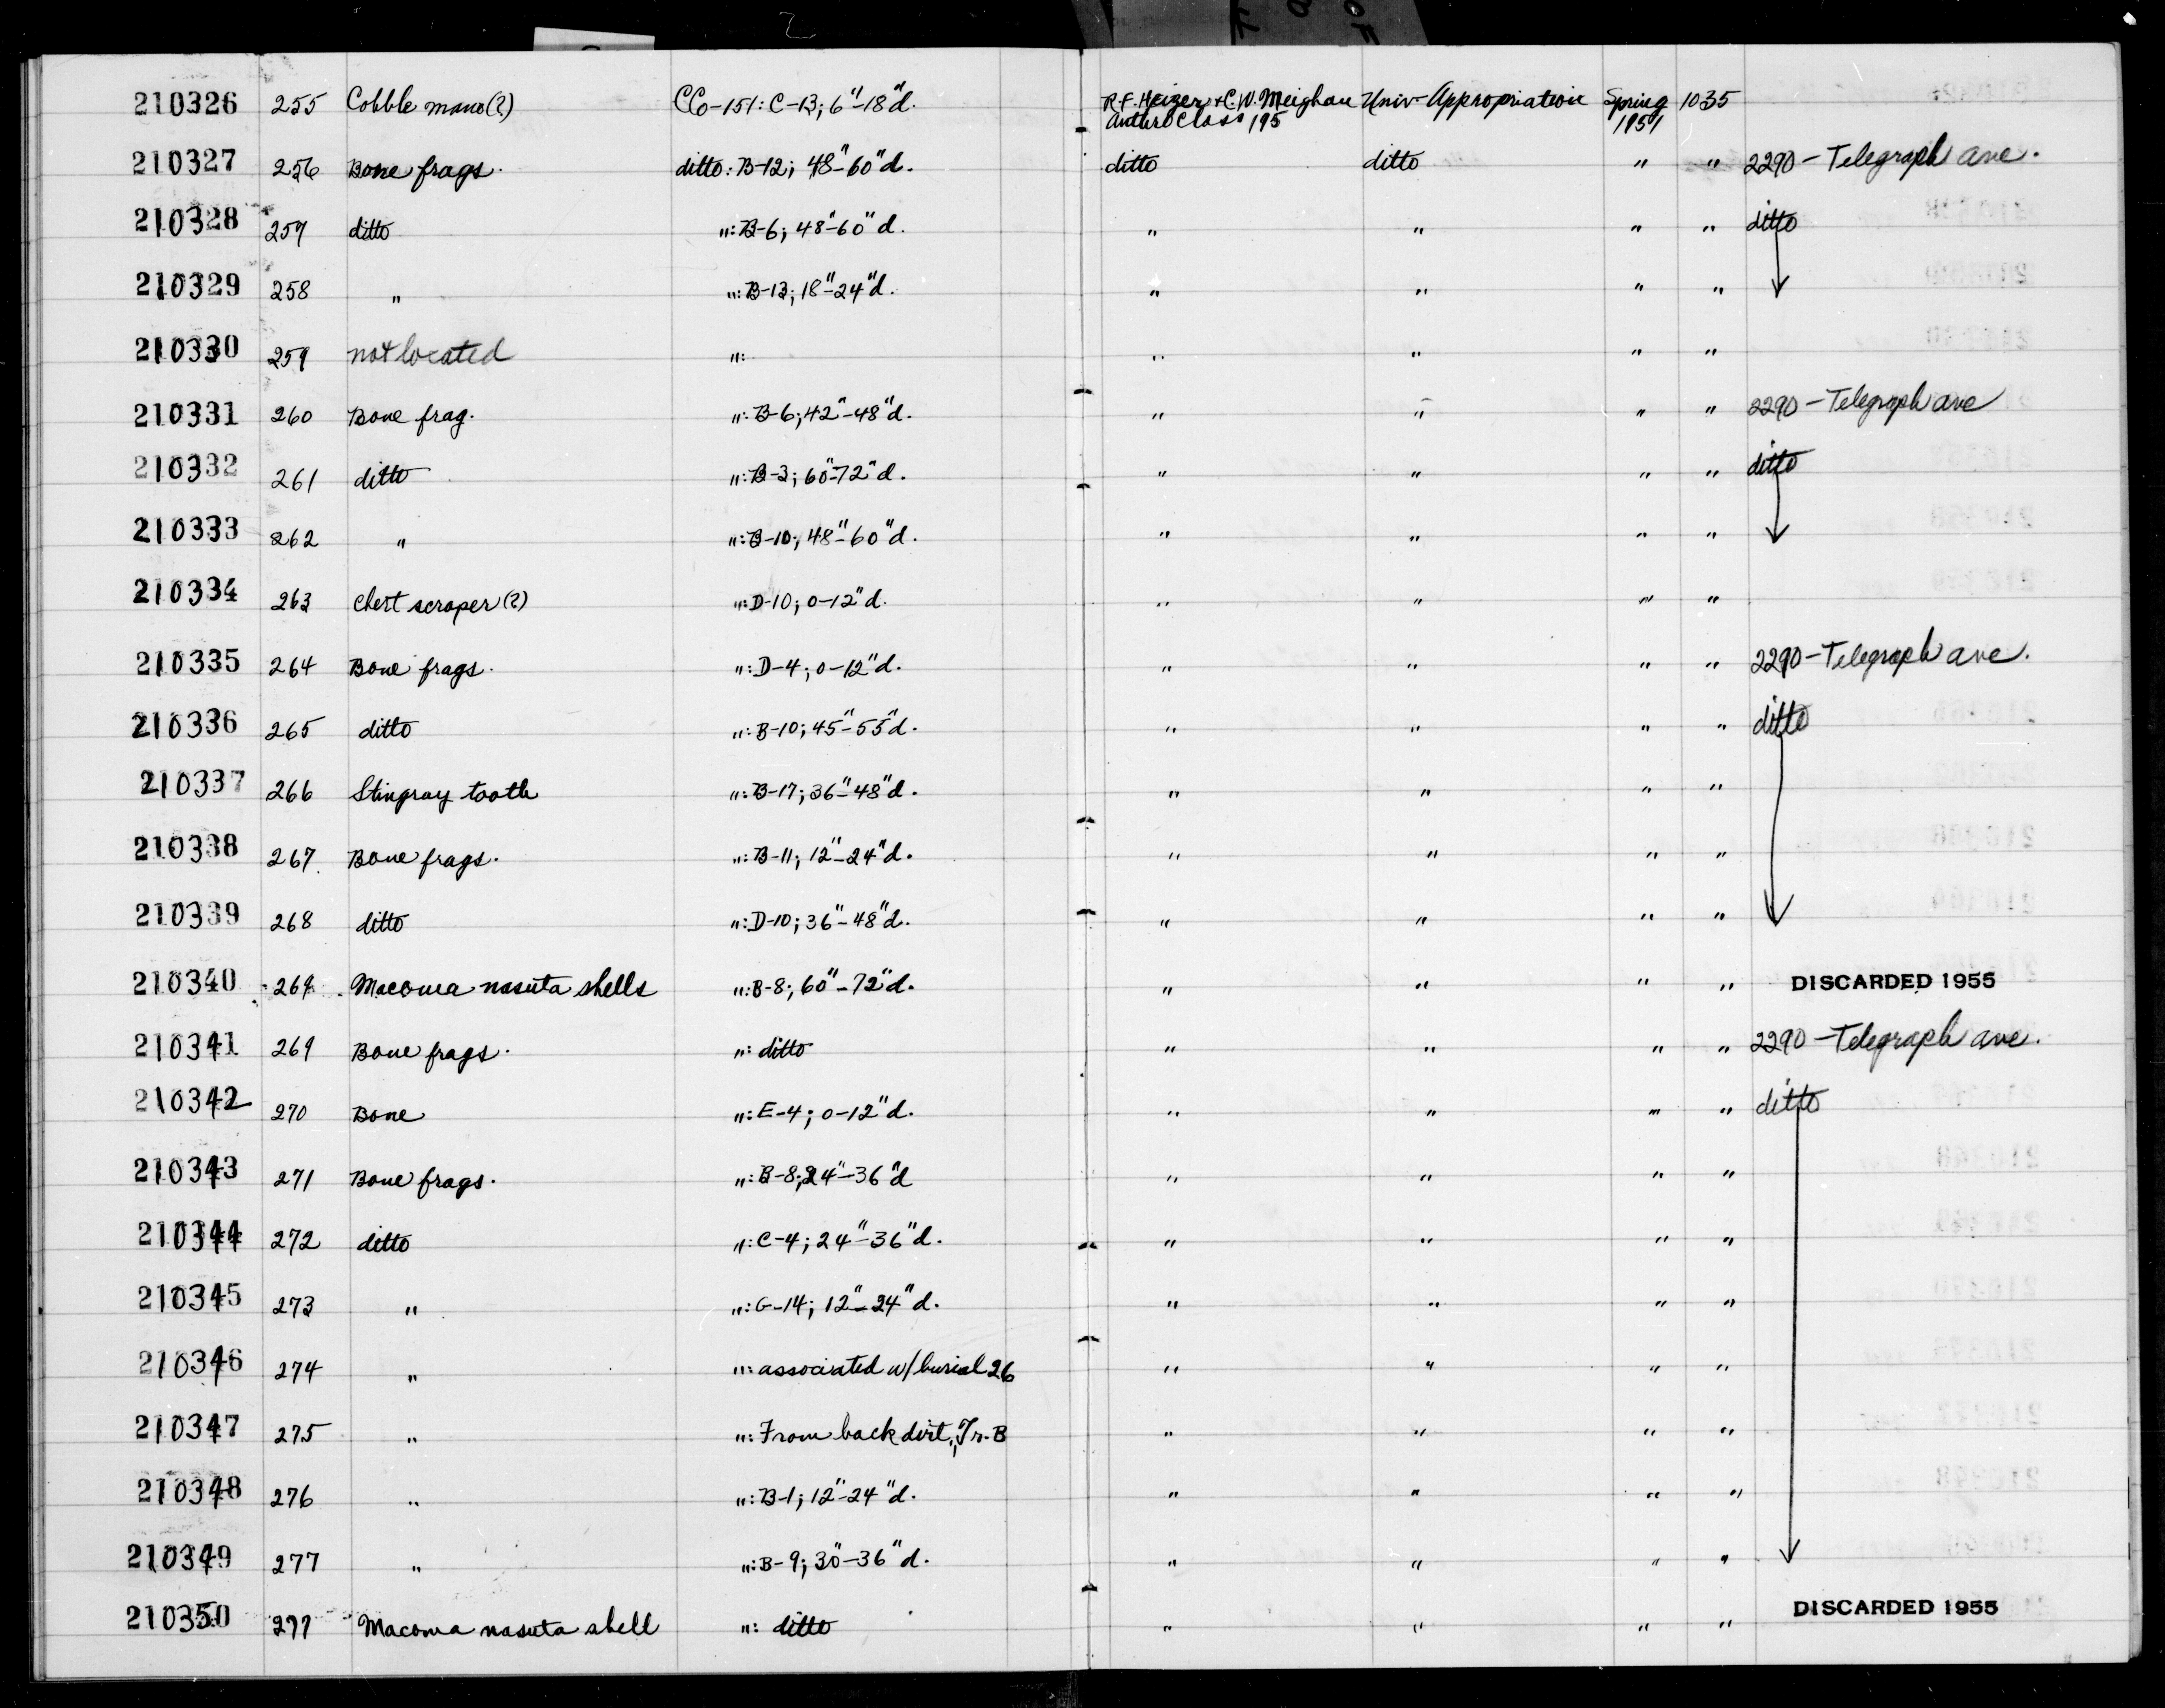 210326 255 Cobble mano(?) CCo-151: C-13; 6"-18"d. R.F. Heizer + C.W. Meighan Univ. Appropriation Spring 1035
Anthro Class 195 1951
210327 256 Bone frags. ditto: B-12; 48"-60"d. ditto ditto " " 2290 - Telegraph Ave.
210328 257 ditto ": B-6; 48"-60"d. " " " " ditto
210329 258 " ": B-13; 18"-24"d. " " " "
210330 259 not located ": " " " "
210331 260 Bone frag. ": B-6; 42"-48"d. " " " " 2290 - Telegraph Ave
210332 261 ditto ": B-3; 60"-72"d. " " " " ditto
210333 262 " ": B-10; 48"-60"d. " " " "
210334 263 Chert scraper(?) ": D-10; 0-12"d. " " " "
210335 264 Bone frags. ": D-4; 0-12"d. " " " " 2290 - Telegraph Ave.
210336 265 ditto ": B-10; 45"-55"d. " " " " ditto
210337 266 Stingray tooth ": B-17; 36"-48"d. " " " "
210338 267. Bone frags. ": B-11; 12"-24"d. " " " "
210339 268 ditto ": D-10; 36"-48"d. " " " "
210340 269 Macoma nasuta shells ": B-8; 60"-72"d. " " " " DISCARDED 1955
210341 269 Bone frags. ": ditto " " " " 2290 - Telegraph Ave.
210342 270 Bone ": E-4; 0-12"d. " " " " ditto
210343 271 Bone frags. ": B-8; 24"-36"d " " " "
210344 272 ditto ": C-4; 24"-36"d. " " " "
210345 273 " ": G-14; 12"-24"d. " " " "
210346 274 " ": associated w/ burial 26 " " " "
210347 275 " ": From back dirt, Tr. B " " " "
210348 276 " ": B-1; 12"-24"d. " " " "
210349 277 " ": B-9; 30"-36"d. " " " "
210350 277 Macoma nasuta shell ": ditto " " " " DISCARDED 1955